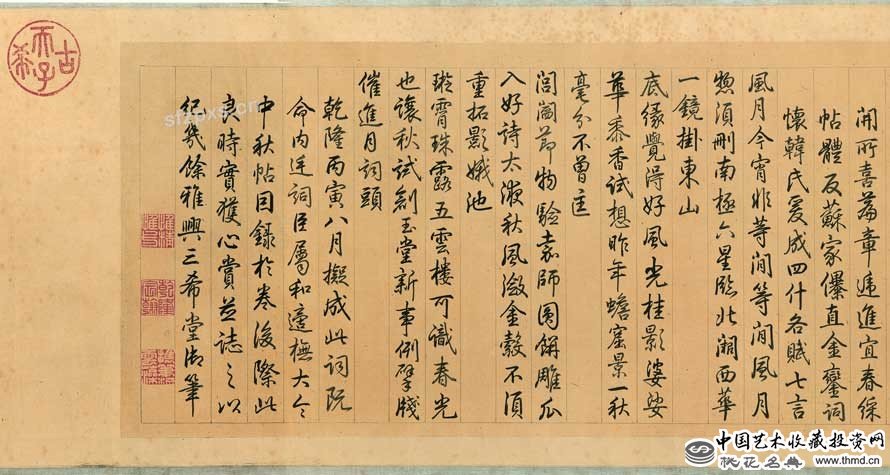 開所喜篇章遞進宜春綵
帖體反蘇家儤直金鑾詞
懷韓氏爰成四什各賦七言
風月今宵非等閒等閒風月
總須刪南極六星臨北西華
一鏡掛東山
底緣覺得好風光桂影婆娑
華黍香試想昨年蟾窟景一秋
毫分不曾
閶闔節物驗嘉師團餅雕瓜
入好詩太液秋風瀲金縠不須
重拓影娥池
璇霄珠露五雲樓可識春光
也讓秋試創玉堂新事例擘牋
催進月詞頭
乾隆丙寅八月擬成此詞既
命內廷詞臣屬和遂橅大令
中秋帖因錄於卷後際此
良時實獲心賞並誌之以
紀幾餘雅興三希堂御筆
古希天子
中国艺术收藏投资网
桃花名典 www.thmd.cn